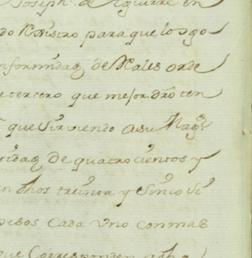 Joseph de Aguirre en
do Nuestro para que lo ago
nformidad de Rales orde
e tercero que mejor dro ten
que sirviendo a su Magd
ntidad de quatrocientos y
n dhos treinta y sinco
pesos cada uno con mas
que corresponden